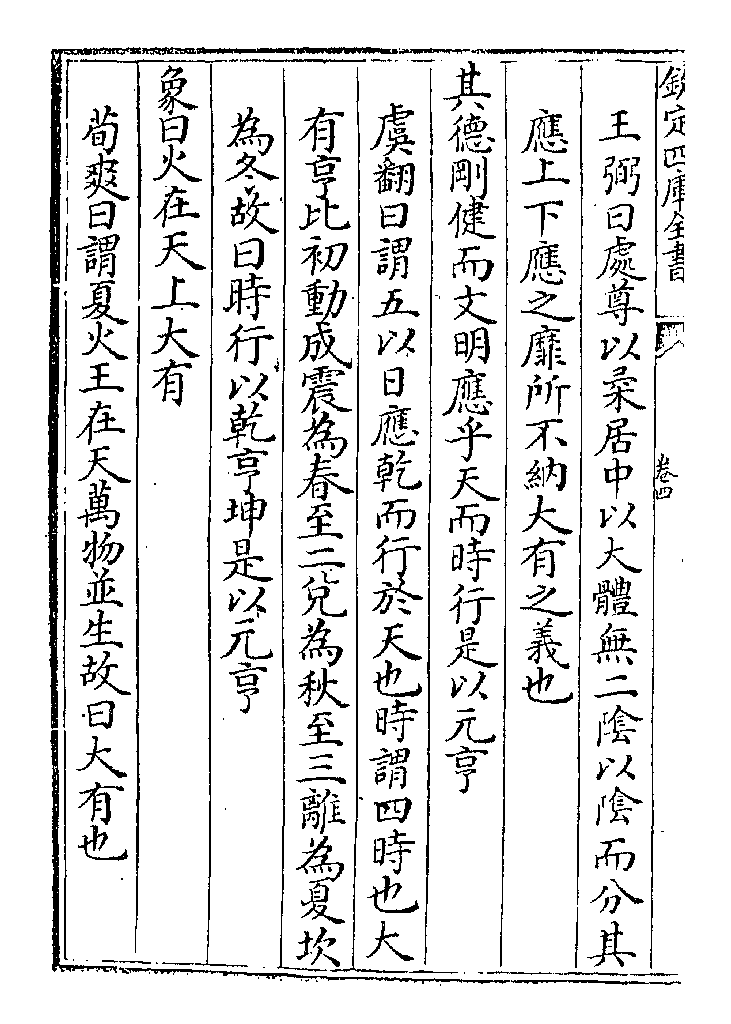 欽定四庫全書
卷四
王弼曰處尊以柔居中以大體無二陰以陰而分其
應上下應之靡所不納大有之義也
其德剛健而文明應乎天而時行是以元亨
虞翻曰謂五以日應乾而行於天也時謂四時也大
有亨比初動成震為春至二兌為秋至三離為夏坎
為冬故曰時行以乾亨坤是以元亨
象曰火在天上大有
荀爽曰謂夏火王在天萬物並生故曰大有也